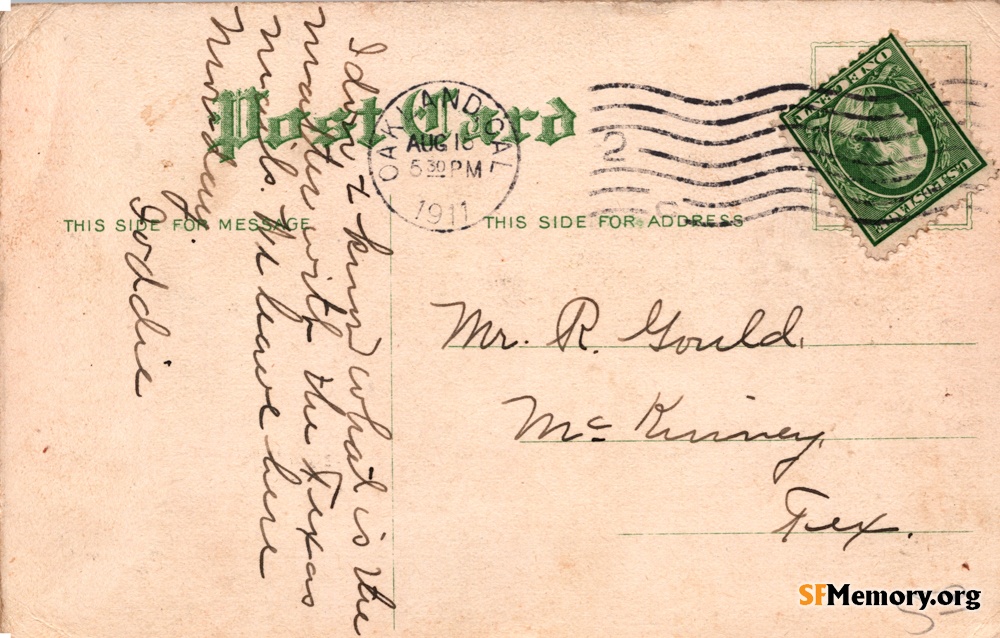 Post Card
OAKLAND, CAL.
AUG 16
5 30 PM
1911
THIS SIDE FOR MESSAGE
THIS SIDE FOR ADDRESS
I don't know what is the
matter with the Texas
mails. I'll leave here
Monday
Mr. R. Gould.
McKinney,
Tex.
SFMemory.org